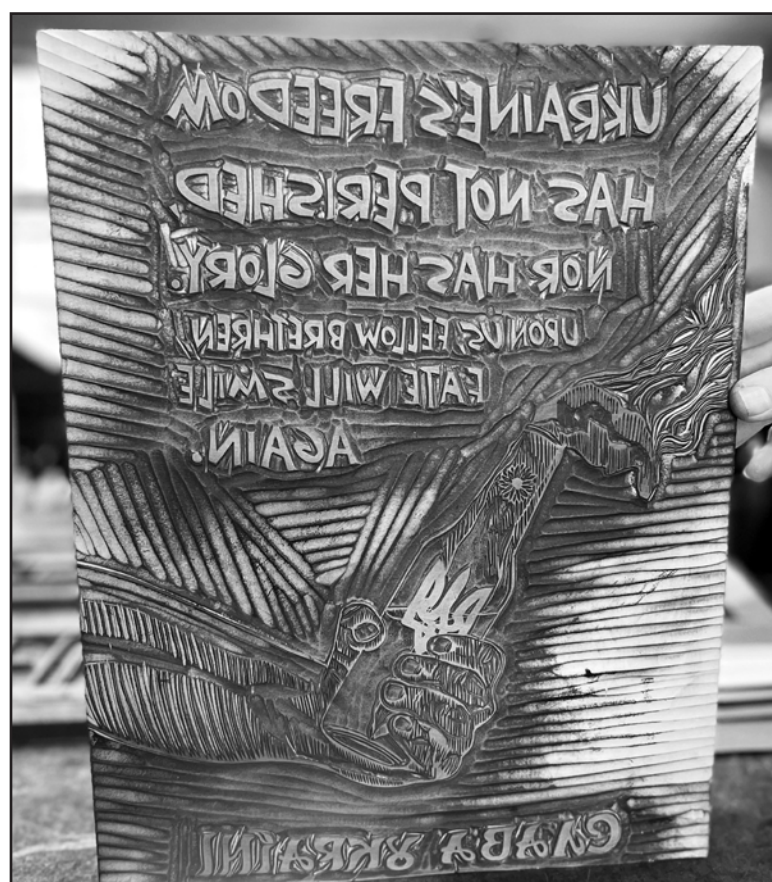 UKRAINE'S FREEDOM
HAS NOT PERISHED,
NOR HAS HER GLORY!
UPON US, FELLOW BRETHREN,
FATE WILL SMILE
AGAIN.
СЛАВА УКРАЇНІ